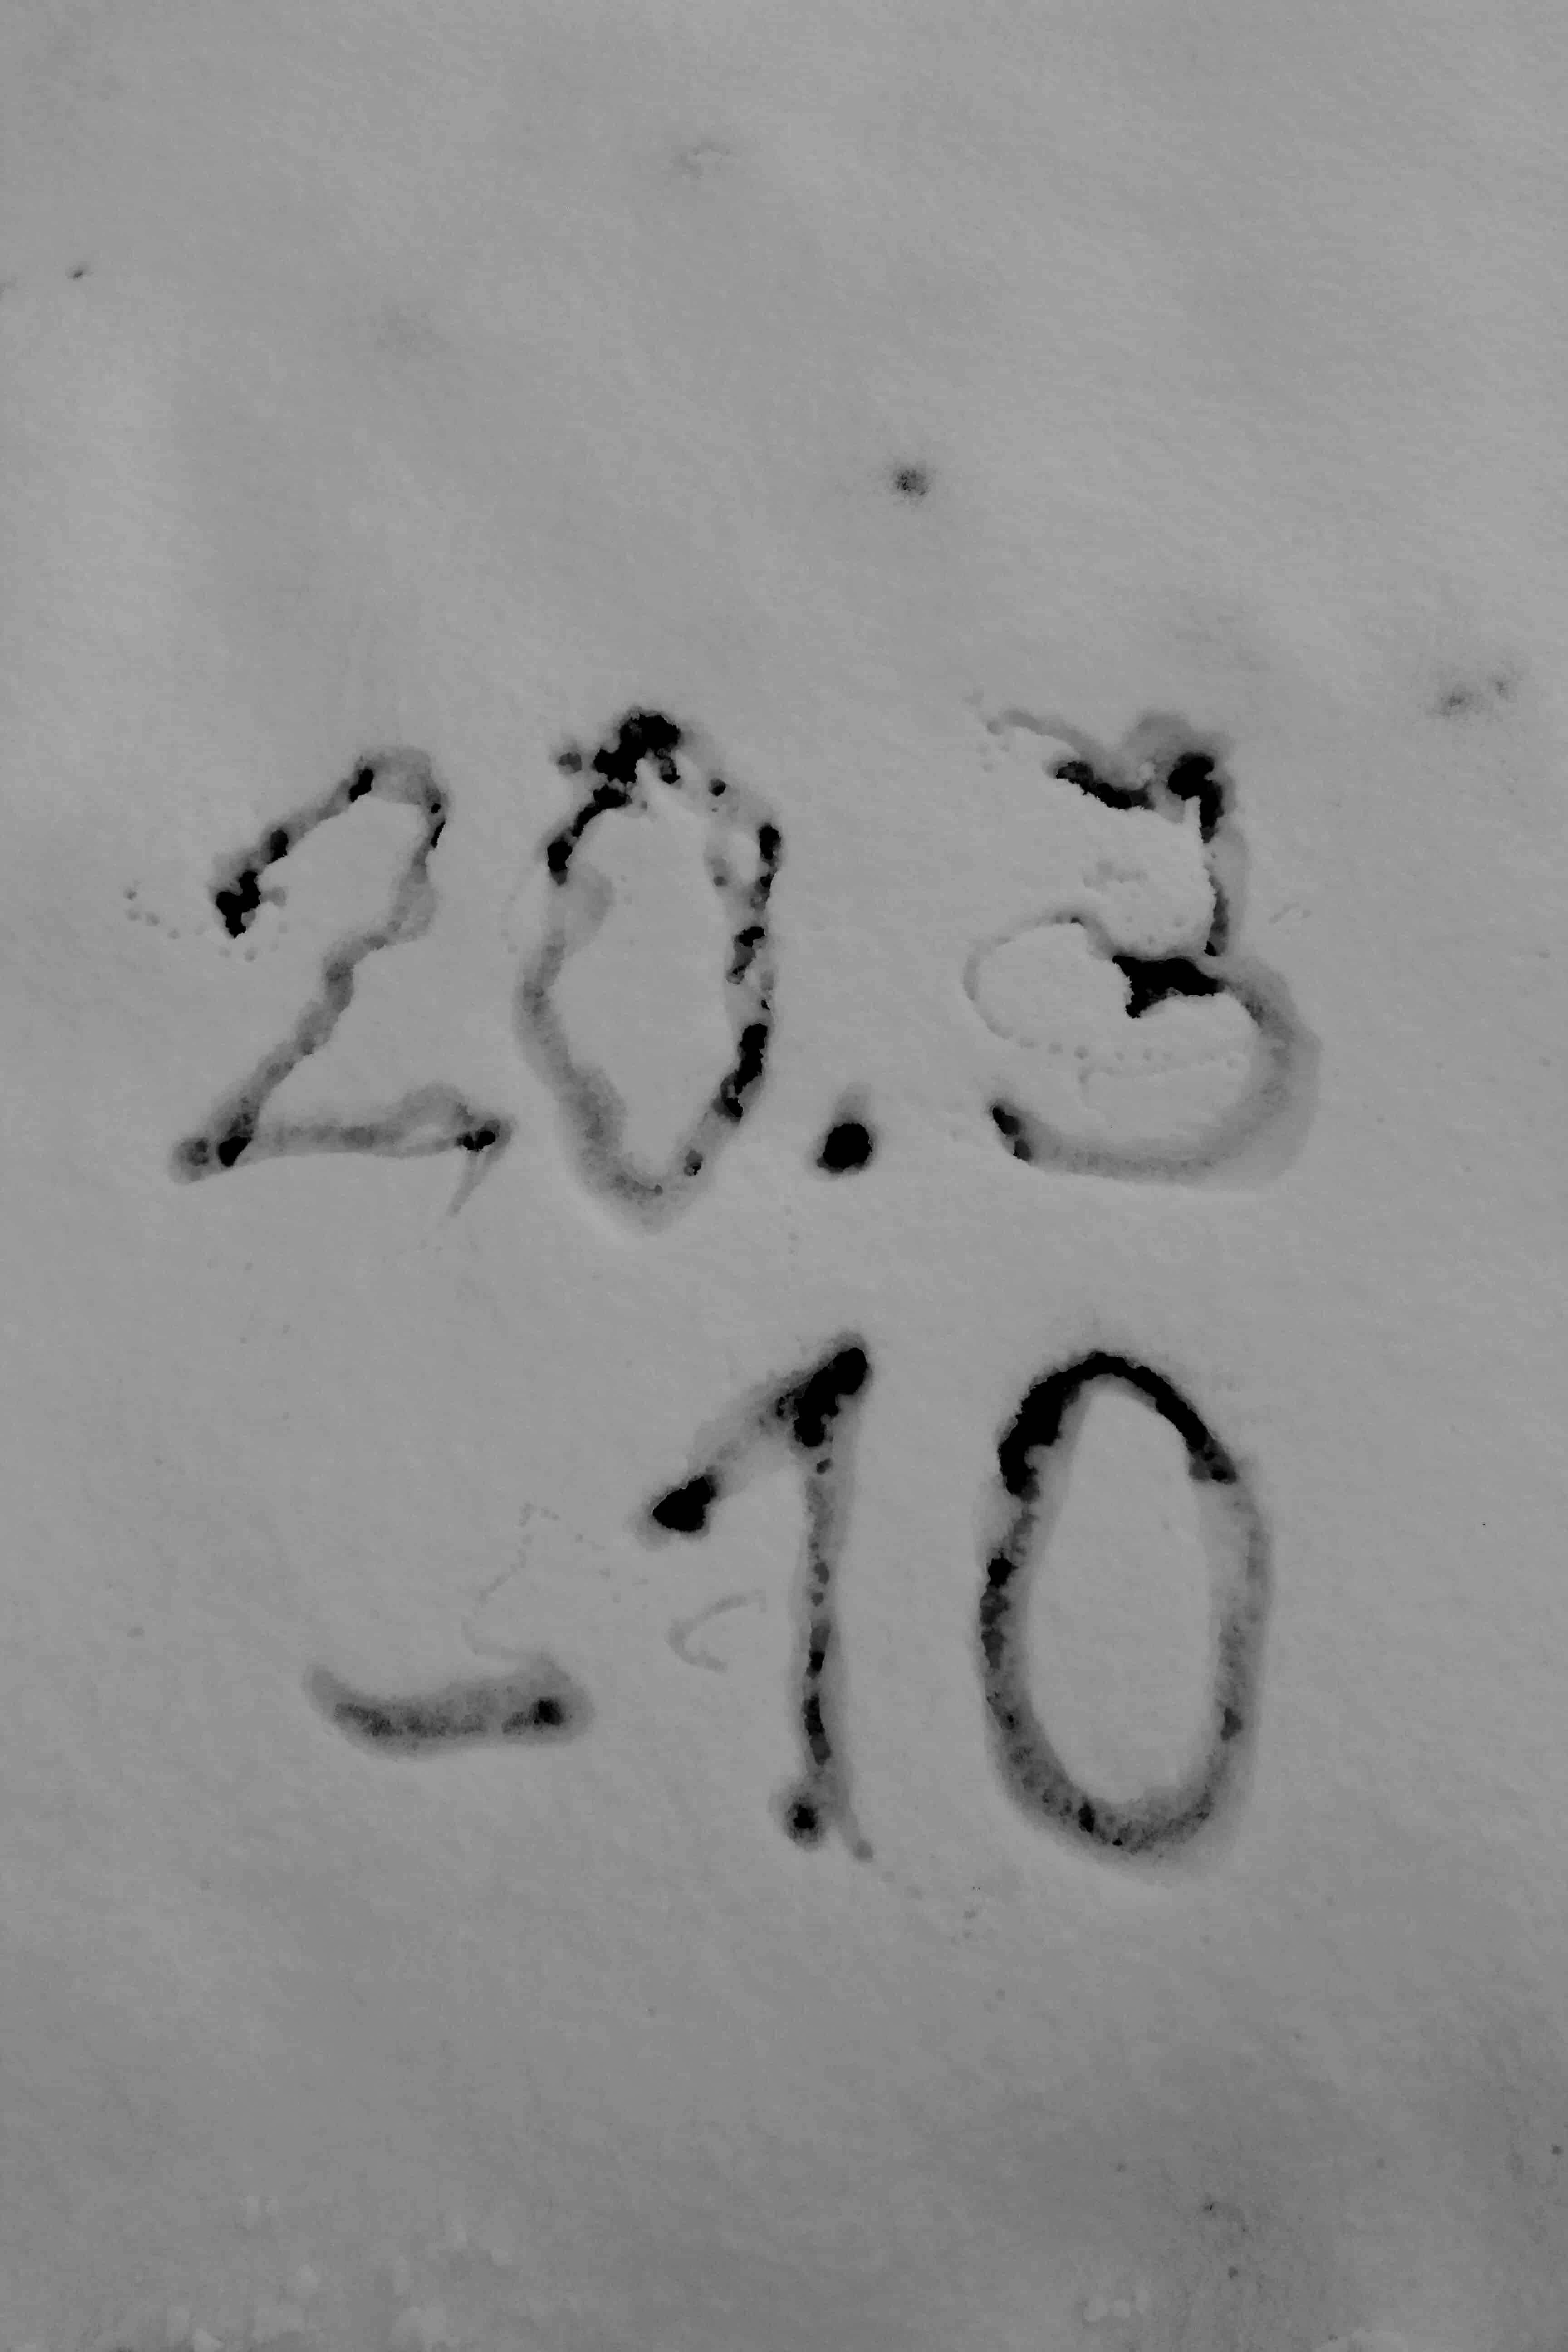 20.3
-10